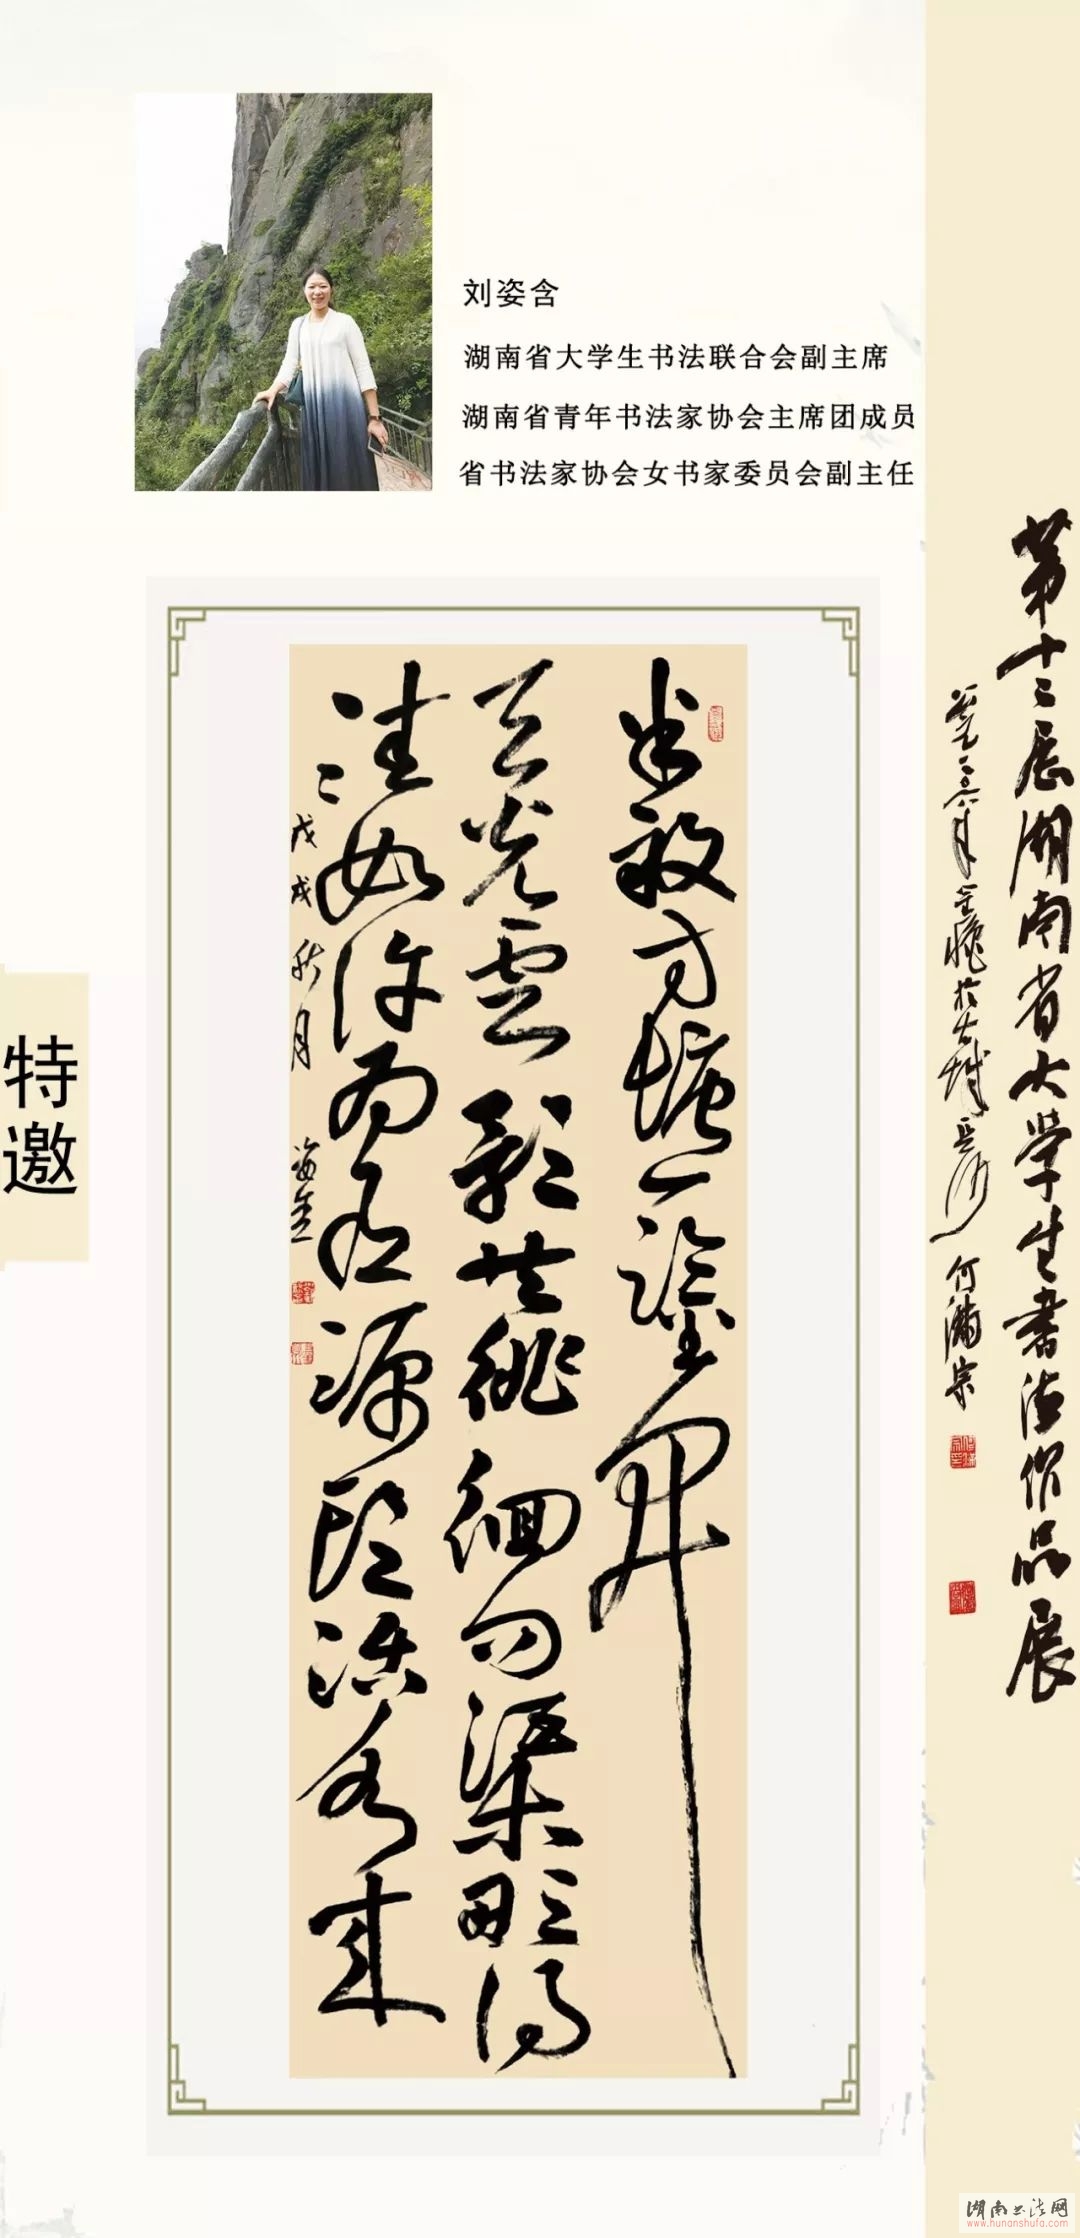 刘姿含
湖南省大学生书法联合会副主席
湖南省青年书法家协会主席团成员
省书法家协会女书家委员会副主任
特邀
半亩方塘一鉴开
天光雲影共徘徊问渠那得
清如许为有源头活水来
戊戌秋月 姿含
第十二届湖南省大学生书法作品展
何满宗
湖南书法网
www.hunanshufa.com